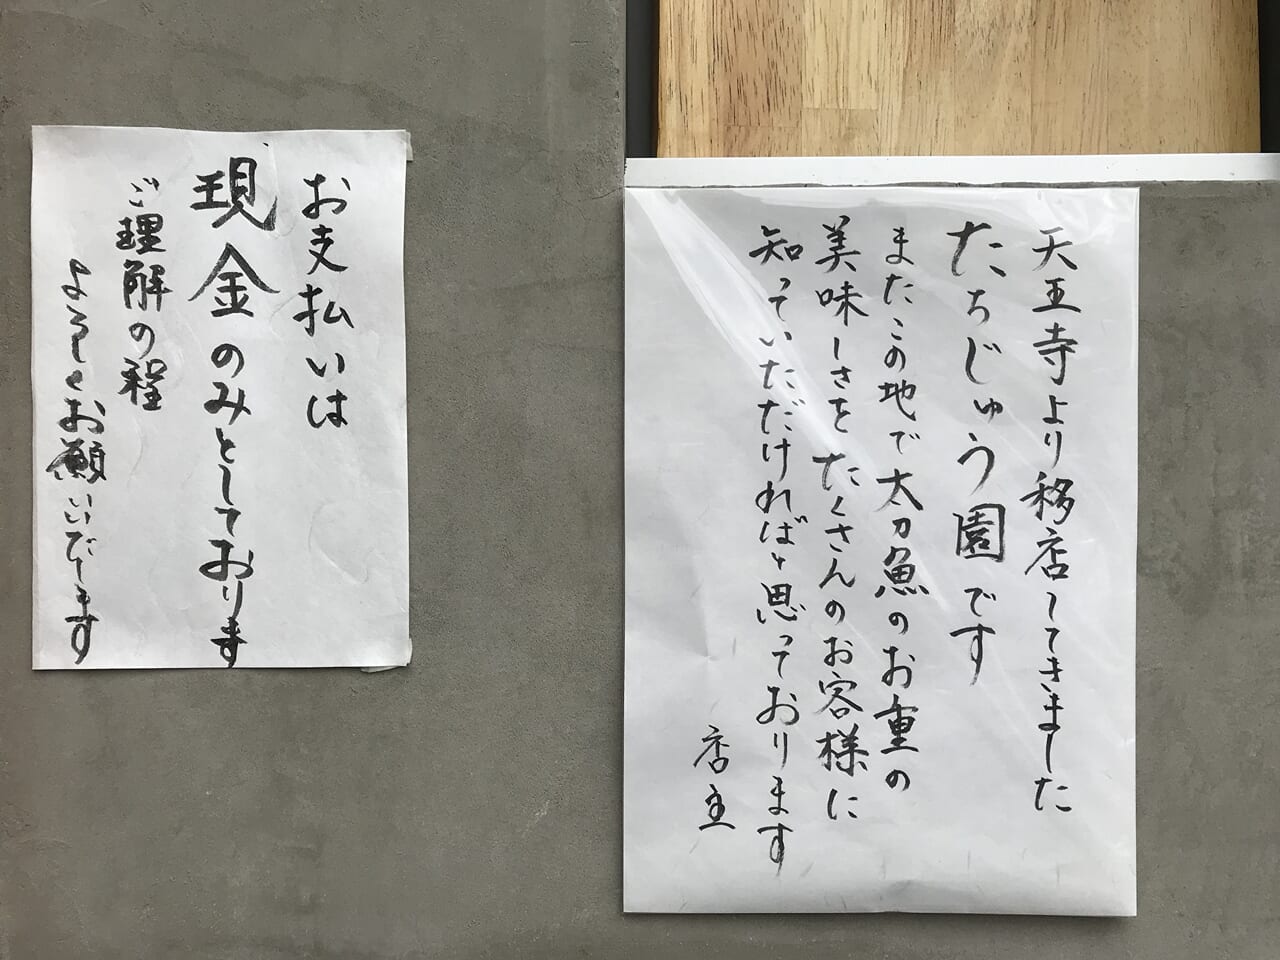 お支払いは
現金のみとしております
ご理解の程
よろしくお願いいたします
天王寺より移店してきました
たちじゅう園です
またこの地で太刀魚のお重の
美味しさをたくさんのお客様に
知っていただければと思っております
店主